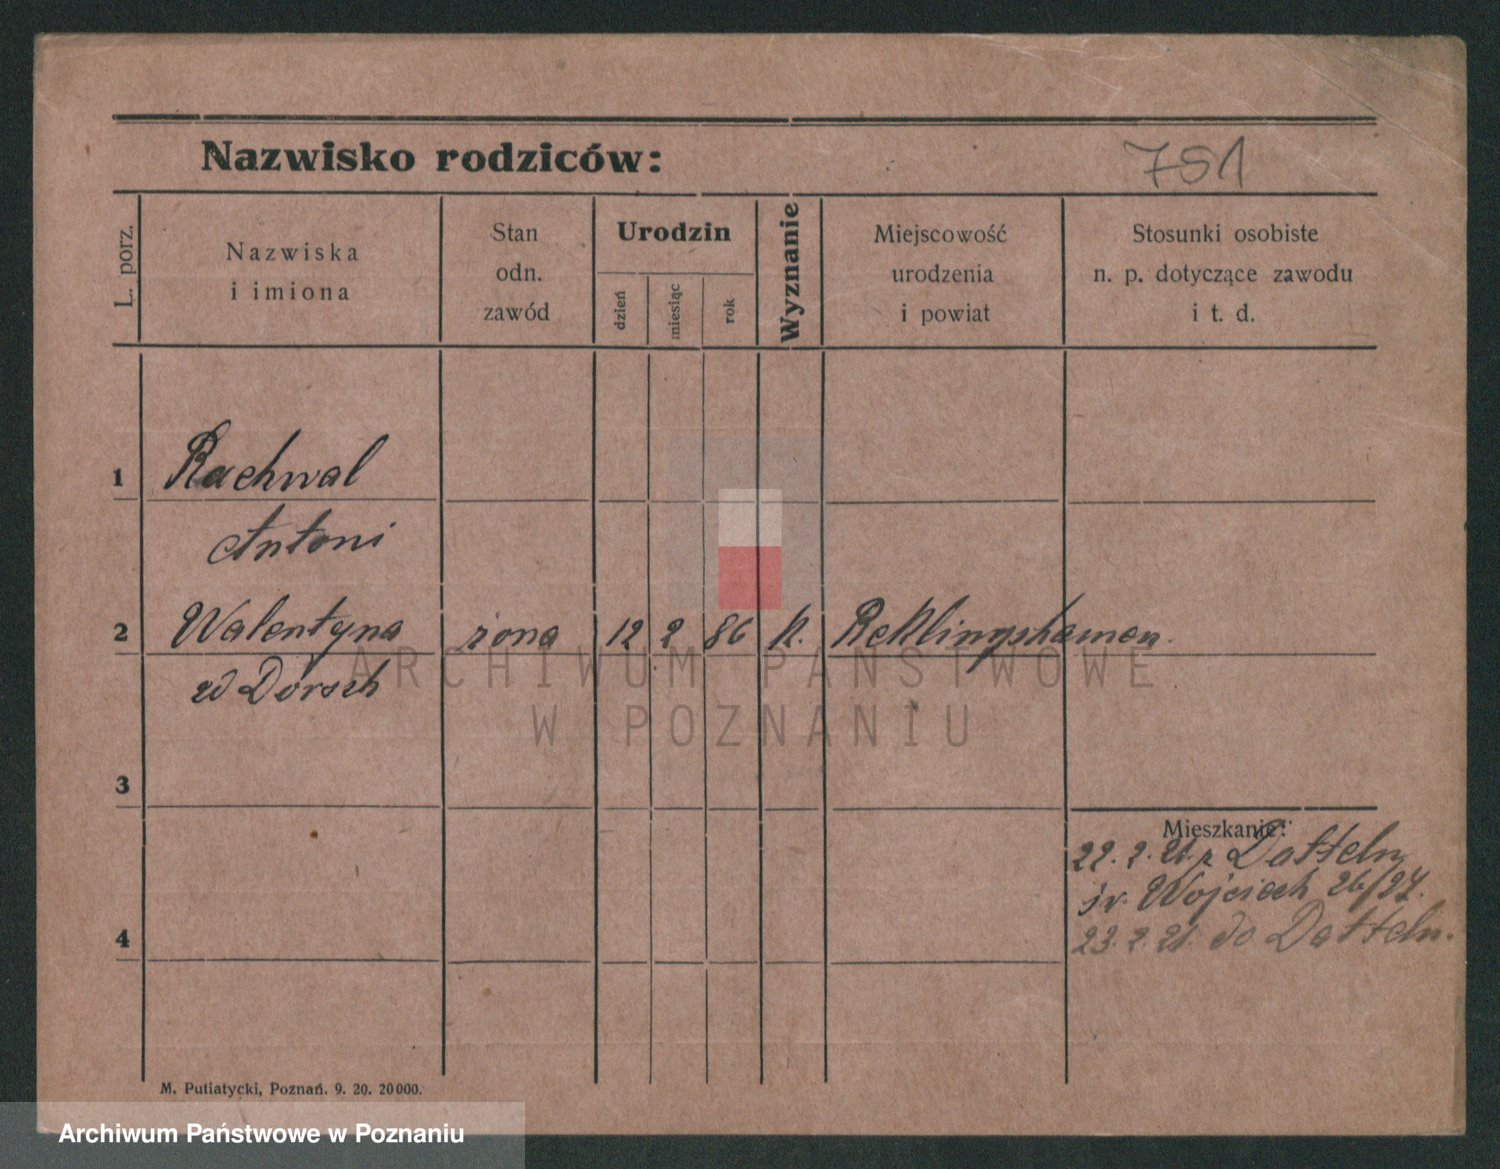 Nazwisko rodziców:
751
L. porz.
Nazwiska
i imiona
Stan
odn.
zawód
Urodzin
dzień
miesiąc
rok
Wyznanie
Miejscowość
urodzenia
i powiat
Stosunki osobiste
n. p. dotyczące zawodu
i t. d.
1 Rachwal
Antoni
2 Walentyna żona 12 2 86 k. Reklingshamen.
zd Dorsch
3
Mieszkanie:
22. 2. 21. z Datteln
św. Wojciech 26/27.
23. 2. 21. do Datteln.
4
M. Putiatycki, Poznań. 9. 20. 20000.
ARCHIWUM PAŃSTWOWE
W POZNANIU
Archiwum Państwowe w Poznaniu